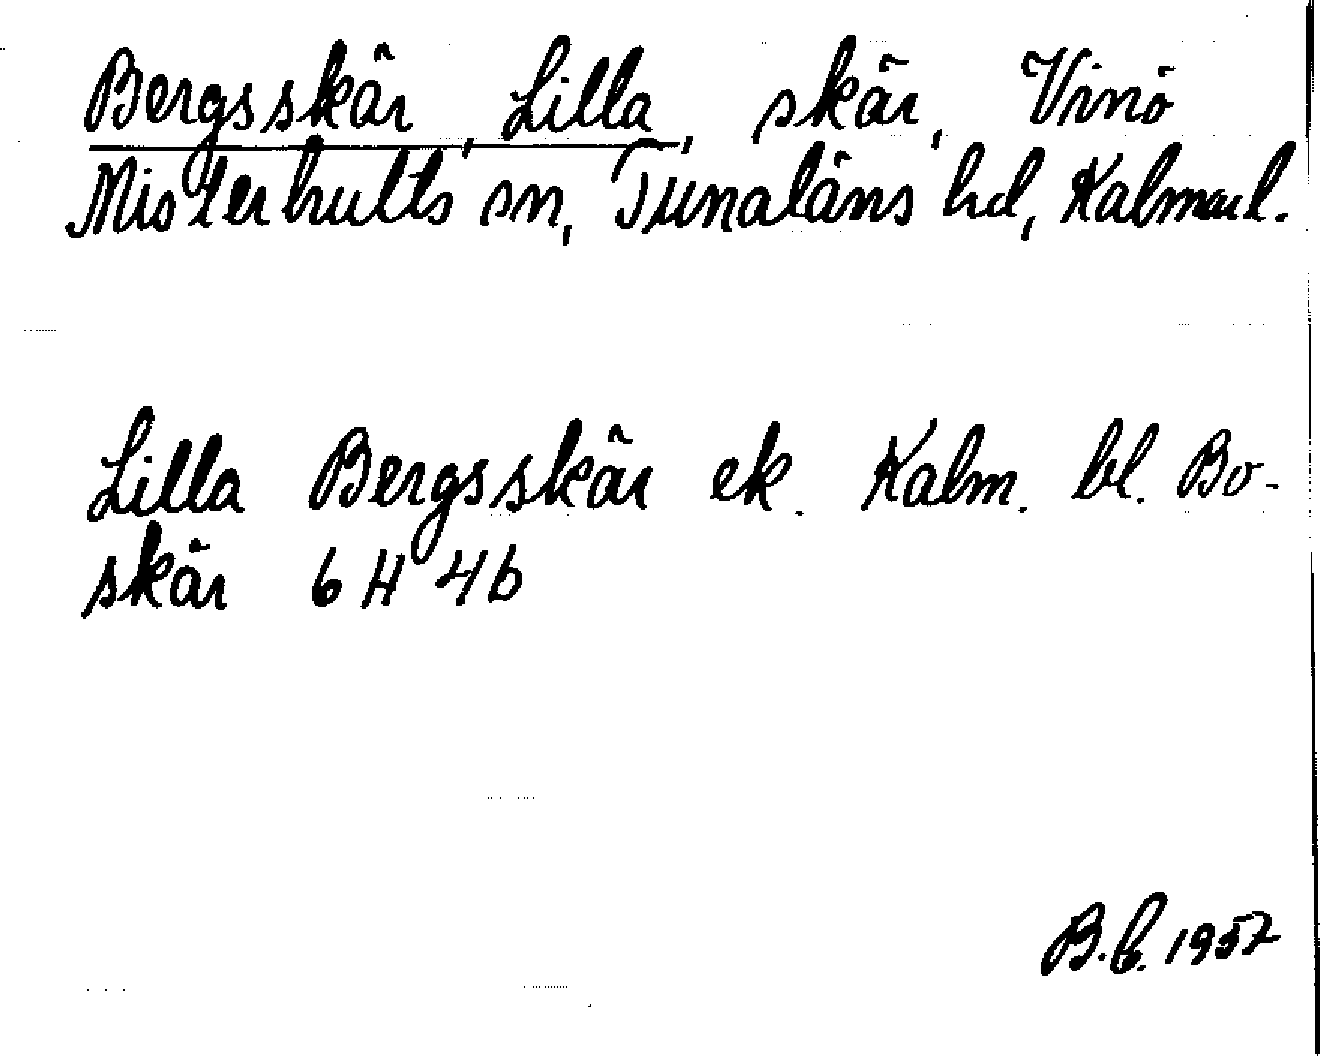 Bergsskär, Lilla, skär, Vinö
Misterhults sn, Tunaläns hd, Kalmar l.
Lilla Bergsskär ek. Kalm. bl. Bo-
skär 6 H 4 b
B.b. 1957